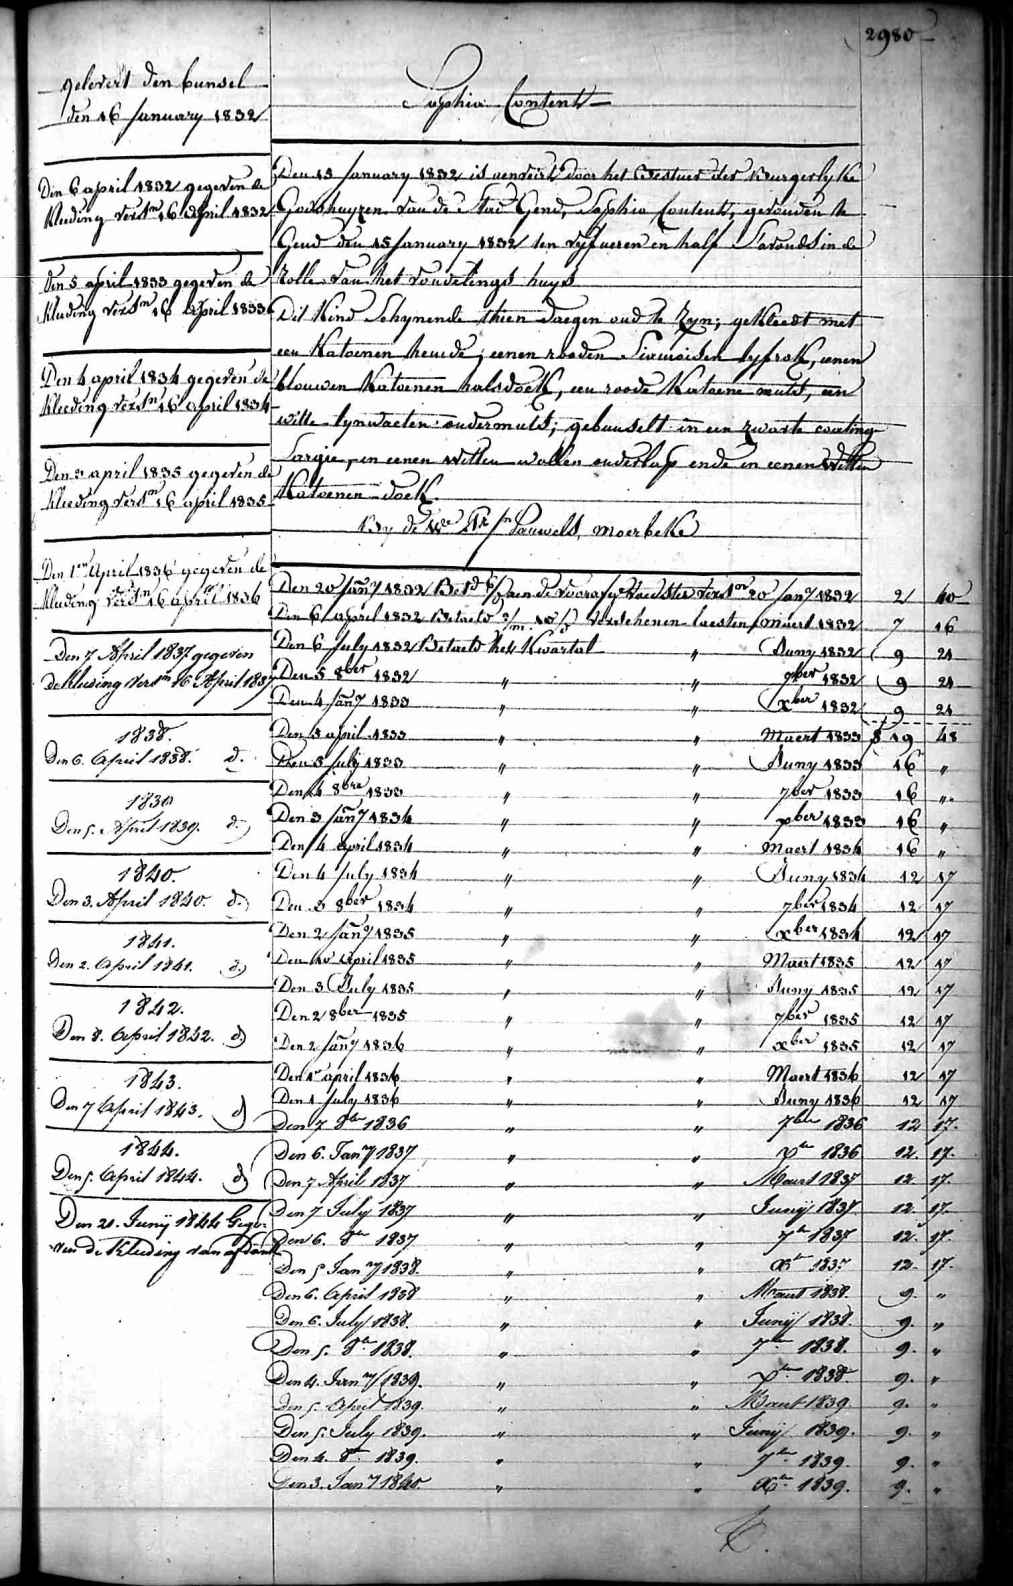 2980
gelevert den bunsel
den 16 January 1832
Sophia Content
Den 6 april 1832 gegeven de
kleeding verst.n 16 april 1832
Den 5 april 1833 gegeven de
kleeding verst.n 16 april 1833
Den 4 april 1834 gegeven de
kleeding verst.n 16 april 1834
Den 3 april 1835 gegeven de
kleeding verst.n 16 april 1835
Den 1.en April 1836 gegeven de
kleeding verst.n 16 april 1836
Den 7 April 1837 gegeven
de kleeding verst.n 16 April 1837
1838.
Den 6. April 1838. d.
1839
Den 5. April 1839. d.
1840.
Den 3. April 1840. d.
1841.
Den 2. April 1841. d.
1842.
Den 8. April 1842. d
1843.
Den 7 April 1843. d
1844.
Den 5. April 1844. d
Den 21. Junij 1844 Gege-
ven de Kleeding van afdank
Den 15 January 1832 is door het Bestuer der Burgerlyke
Godshuyzen van de Stad Gend, Sophia Content, gevonden te
Gend den 15 January 1832 ten vyf ueren en half S'avonds in de
Rolle van het vondelings huys
Dit Kind Schynende thien daegen oud te Zyn; gekleedt met
een Katoenen hemde; eenen rooden lyfrok, eenen
blouwen Katoenen halsdoek, een roode Katoene muts, een
witte lynwaeten ondermuts; gebunselt in een zwarte coating
Sargie, in eenen witten wollen onderlap ende in eenen witten
Katoenen doek.
By de W.e Pauwels, moerbeke
Den 20 Jan.y 1832 Bet.d aen de voorsz. verst.en 20 Jan.y 1832 2 40
Den 6 april 1832 Betaeld verschenen laesten maert 1832 7 16
Den 6 July 1832 Betaeld het Kwartal " Juny 1832 9 24
Den 5 8ber 1832 " " 7ber 1832 9 24
Den 4 Jan.y 1833 " " Xber 1832 9 24
Den 5 april 1833 " " Maert 1833 $ 19 48
Den 5 July 1833 " " Juny 1833 16 "
Den 4 8bre 1833 " " 7ber 1833 16 "
Den 3 Jan.y 1834 " " Xber 1833 16 "
Den 4 april 1834 " " Maert 1834 16 "
Den 4 July 1834 " " Juny 1834 12 17
Den 3 8ber 1834 " " 7ber 1834 12 17
Den 2 Jan.y 1835 " " Xber 1834 12 17
Den April 1835 " " Maert 1835 12 17
Den 3 July 1835 " " Juny 1835 12 17
Den 2 8ber 1835 " " 7ber 1835 12 17
Den 2 Jan.y 1836 " " Xber 1835 12 17
Den 1.e april 1836 " " Maert 1836 12 17
Den 1 July 1836 " " Juny 1836 12 17
Den 7 8ber 1836 " " 7ber 1836 12 17.
Den 6. Jan.y 1837 " " Xber 1836 12. 17.
Den 7 April 1837 " " Maert 1837 12 17.
Den 7 July 1837 " " Junij 1837 12. 17.
Den 6. 8ber 1837 " " 7ber 1837 12. 17.
Den 5 Jan.y 1838. " " Xber 1837 12. 17.
Den 6. April 1838 " " Maart 1838. 9. "
Den 6. July 1838. " " Junij 1838. 9. "
Den 5. 8ber 1838. " " 7ber 1838. 9. "
Den 4. Jan.y 1839. " " Xber 1838 9. "
Den 5. April 1839. " " Maert 1839. 9. "
Den 5. July 1839. " " Junij 1839. 9. "
Den 4. 8ber 1839. " " 7ber 1839. 9. "
Den 3. Jan.y 1840. " " Xber 1839. 9. "